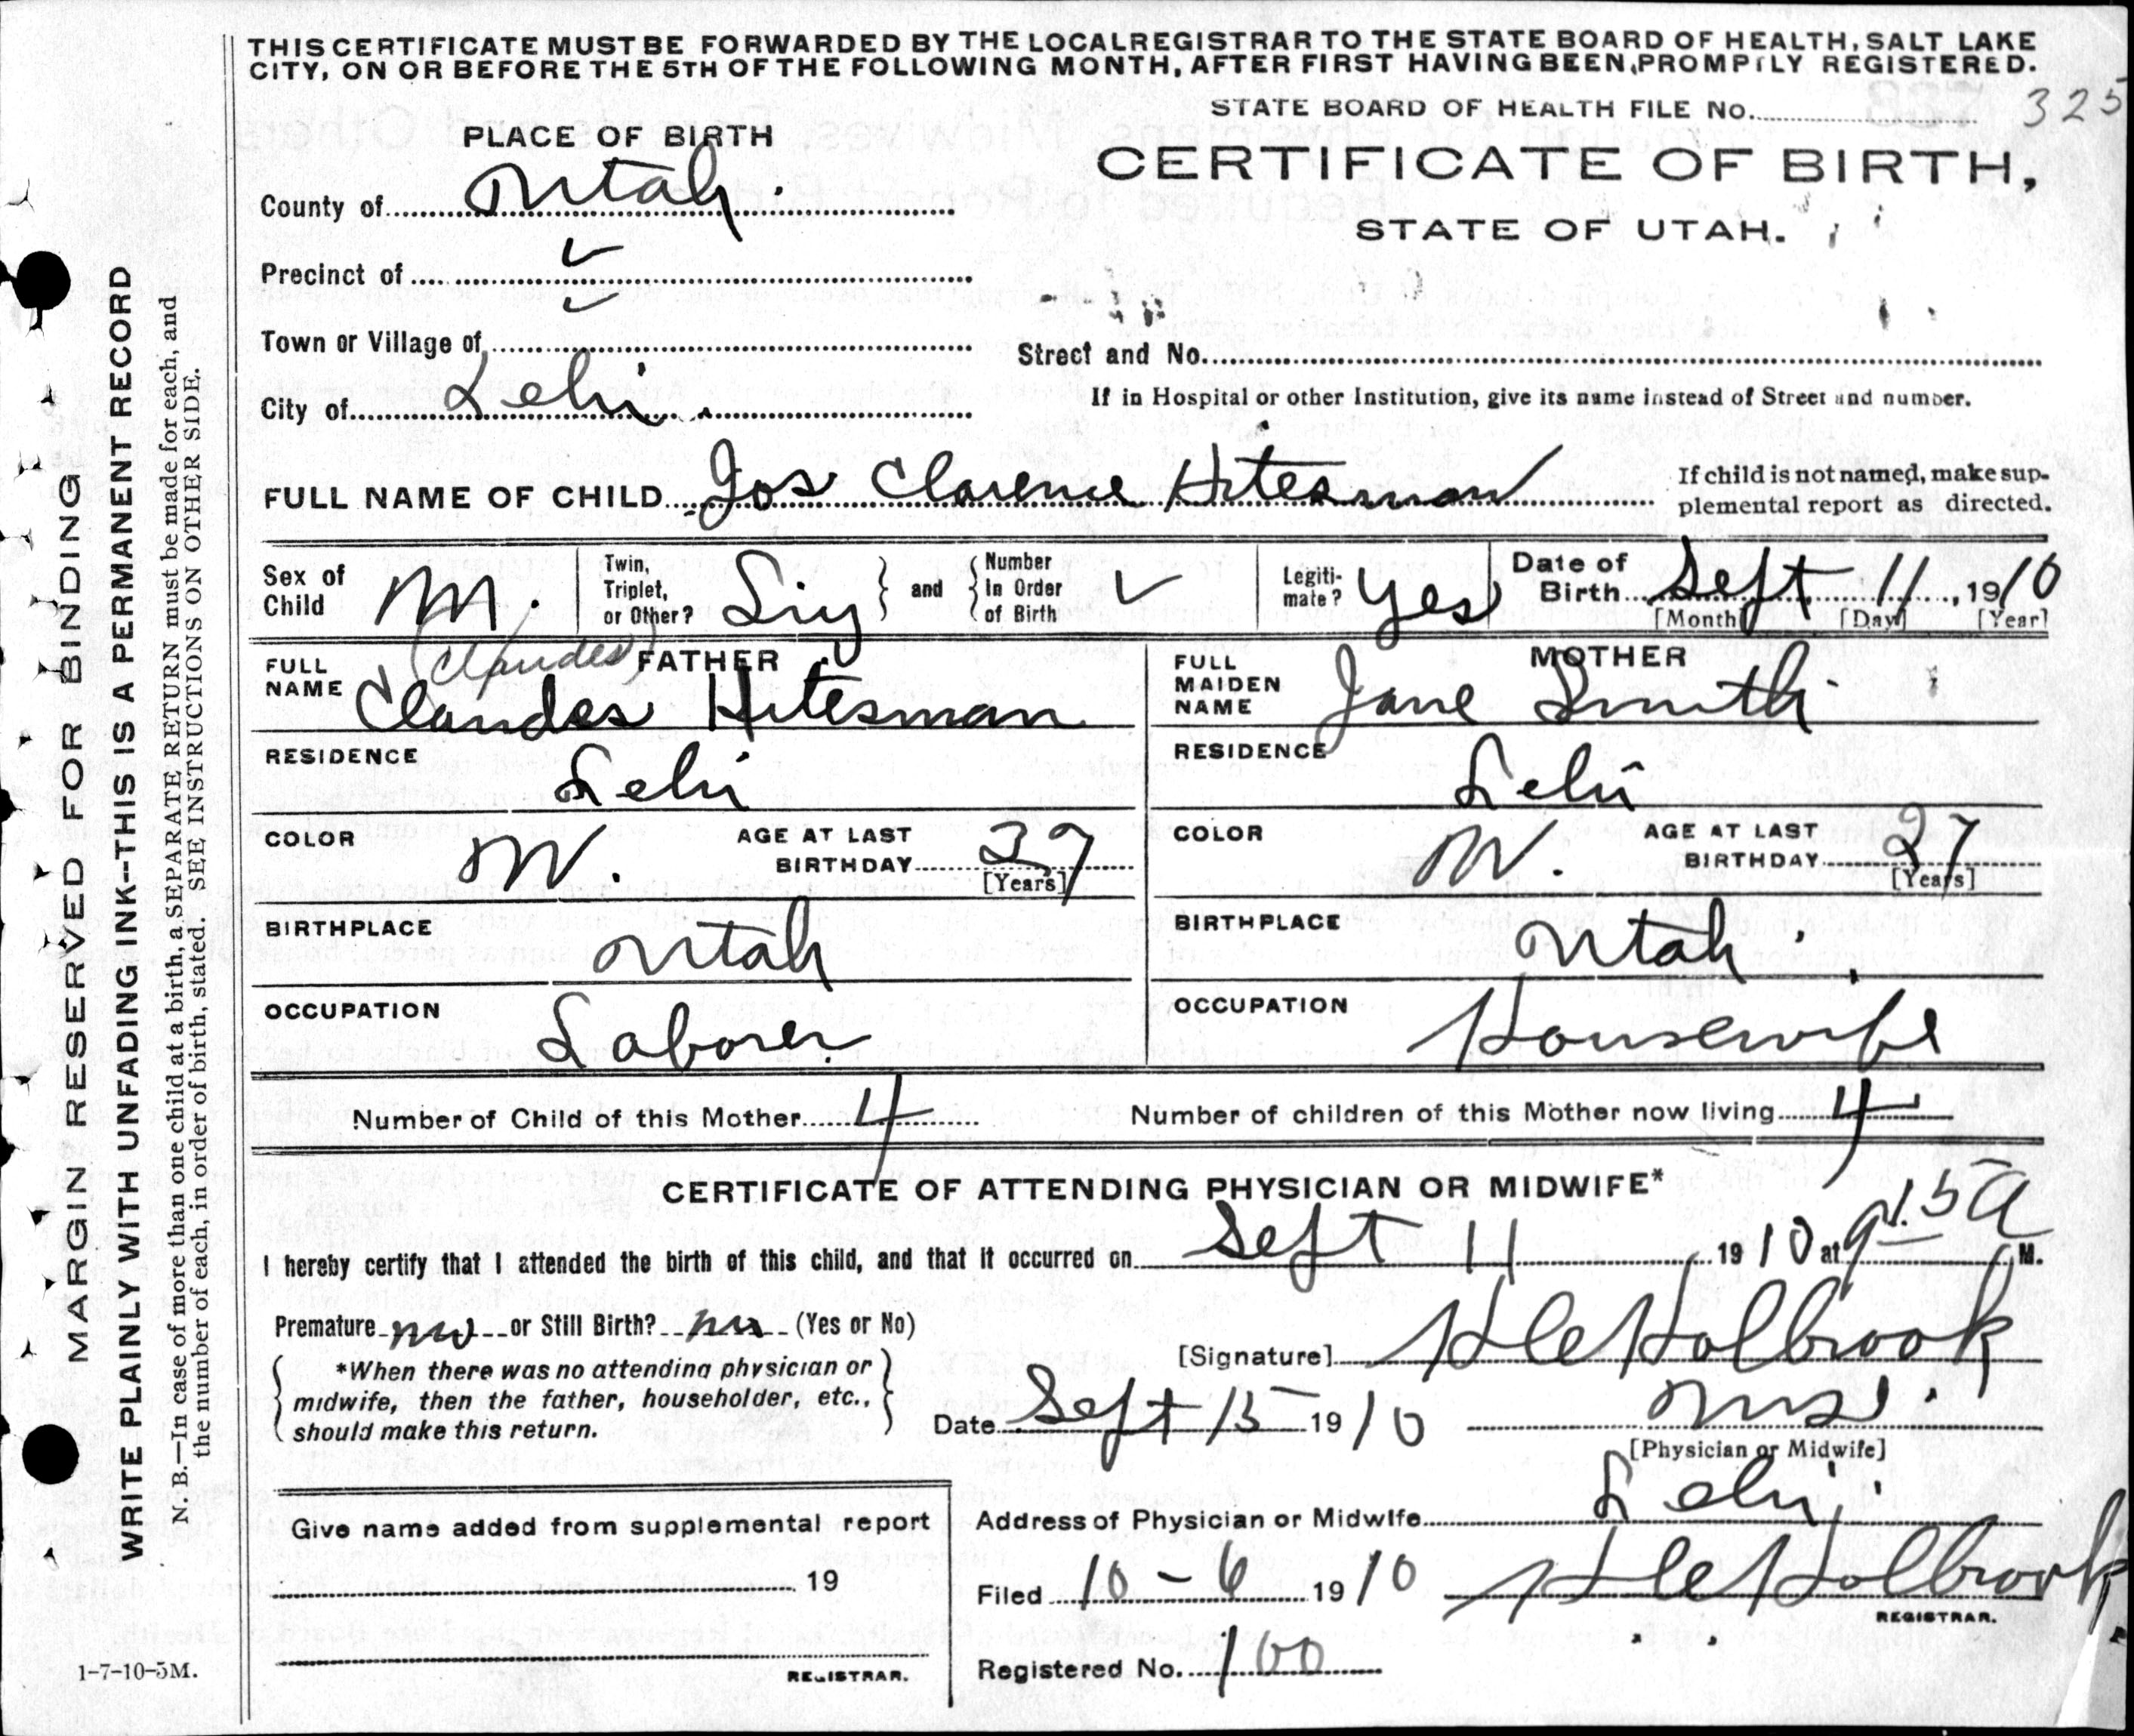 THIS CERTIFICATE MUST BE FORWARDED BY THE LOCAL REGISTRAR TO THE STATE BOARD OF HEALTH, SALT LAKE
CITY, ON OR BEFORE THE 5TH OF THE FOLLOWING MONTH, AFTER FIRST HAVING BEEN PROMPTLY REGISTERED.
STATE BOARD OF HEALTH FILE No. 325
PLACE OF BIRTH
CERTIFICATE OF BIRTH,
STATE OF UTAH.
County of Utah
Precinct of ✓
Town or Village of ✓
Street and No.
City of Lehi
If in Hospital or other Institution, give its name instead of Street and number.
FULL NAME OF CHILD Jos Clarence Hitesman
If child is not named, make sup-
plemental report as directed.
Sex of Child M.
Twin, Triplet, or Other? Sig
and
Number In Order of Birth ✓
Legiti-mate? Yes
Date of Birth Sept 11, 1910
[Month] [Day] [Year]
(Claudes)
FATHER
FULL NAME Claudes Hitesman
MOTHER
FULL MAIDEN NAME Jane Smith
RESIDENCE Lehi
RESIDENCE Lehi
COLOR W. AGE AT LAST BIRTHDAY 39 [Years]
COLOR W. AGE AT LAST BIRTHDAY 27 [Years]
BIRTHPLACE Utah
BIRTHPLACE Utah
OCCUPATION Laborer
OCCUPATION Housewife
Number of Child of this Mother 4
Number of children of this Mother now living 4
CERTIFICATE OF ATTENDING PHYSICIAN OR MIDWIFE*
I hereby certify that I attended the birth of this child, and that it occurred on Sept 11 1910 at 9:15 A M.
Premature no or Still Birth? no (Yes or No)
[Signature] Holbrook
*When there was no attending physician or
midwife, then the father, householder, etc.,
should make this return.
Date Sept 15 1910
[Physician or Midwife]
Address of Physician or Midwife Lehi
Give name added from supplemental report
19
REGISTRAR.
Filed 10-6 1910 Holbrook
REGISTRAR.
Registered No. 100
MARGIN RESERVED FOR BINDING
WRITE PLAINLY WITH UNFADING INK--THIS IS A PERMANENT RECORD
N. B.—In case of more than one child at a birth, a SEPARATE RETURN must be made for each, and
the number of each, in order of birth, stated. SEE INSTRUCTIONS ON OTHER SIDE.
1-7-10-5M.